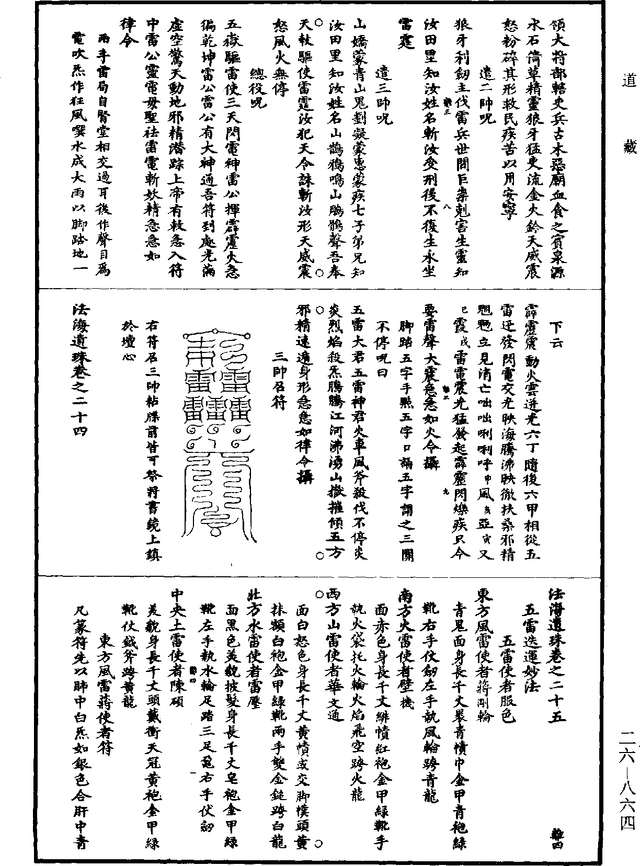 道藏
領大將部轄史兵古木惡廟血食之賓泉源
水石倚草精靈狼牙猛吏流金火鈴天威震
怒粉碎其形救民疾苦以用安寧
遣二帥呪
狼牙利劒主伐雷兵世間巨㮣剋害生靈知
汝田里知汝姓名斬汝受刑後不復生永坐
雷霆
遣三帥呪
山嬌蒙青山鬼劉凝蒙惠蒙疾七子弟兄知
汝田里知汝姓名山鵲鴉鳴山鵰鶻聲吾奉
天敕驅使雷霆汝犯天令誅斬汝形天威震
怒風火無停
總役呪
五嶽驅雷使三天閃電神雷公揮霹靂火急
徧乾坤雷公雷公有大神通吾符到處光滿
虛空驚天動地邪精潛踪上帝有敕急入符
中雷公靈電母聖祛雷電斬妖精急急如
律令
兩手雷局自腎堂相交過耳後作聲目爲
電吹炁作狂風噀水成大雨以脚踏地一
下云
霹靂震動火雲迸光六丁隨後六甲相從五
雷迅發閃電交光映海騰沸映徹扶桑邪精
魍魎立見消亡咄咄唎唎呼申風亥亞寅又
巳霞戌雷電震光猛發起霹靂閃爍疾只今
要雷聲大震急急如火令攝
脚踏五字手點五字口誦五字誦之三關
不停呪曰
五雷大君五雷神君火車風斧殺伐不停炎
炎烈焰殺炁騰騰江河沸湧山嶽摧傾五方
邪精速遁身形急急如律令攝
三帥召符
右符召三帥粘牒前皆可祭將書鏡上鎮
於壇心
法海遺珠卷之二十四
法海遺珠卷之二十五
五雷迭運妙法
五雷使者服色
東方風雷使者蔣剛輪
青星面身長千丈裹青幘巾金甲青袍綠
靴右手仗劒左手執風輪跨青龍
南方火雷使者壁機
面赤色身長千丈緋幘紅袍金甲綠靴手
執火袋托火輪火焰飛空跨火龍
西方山雷使者華文通
面白怒色身長千丈黃幘或交脚幞頭黃
抹額白袍金甲綠靴兩手雙金鎚跨白龍
北方水雷使者雷壓
面黑色美貌披髮身長千丈皂袍金甲綠
靴左手執水輪足踏三足鼋右手仗劒
中央土雷使者陳碩
美貌身長千丈頭戴衝天冠黃袍金甲綠
靴仗鉞斧跨黃龍
東方風雷蔣使者符
凡篆符先以肺中白炁如銀色合肝中青
二六—八六四